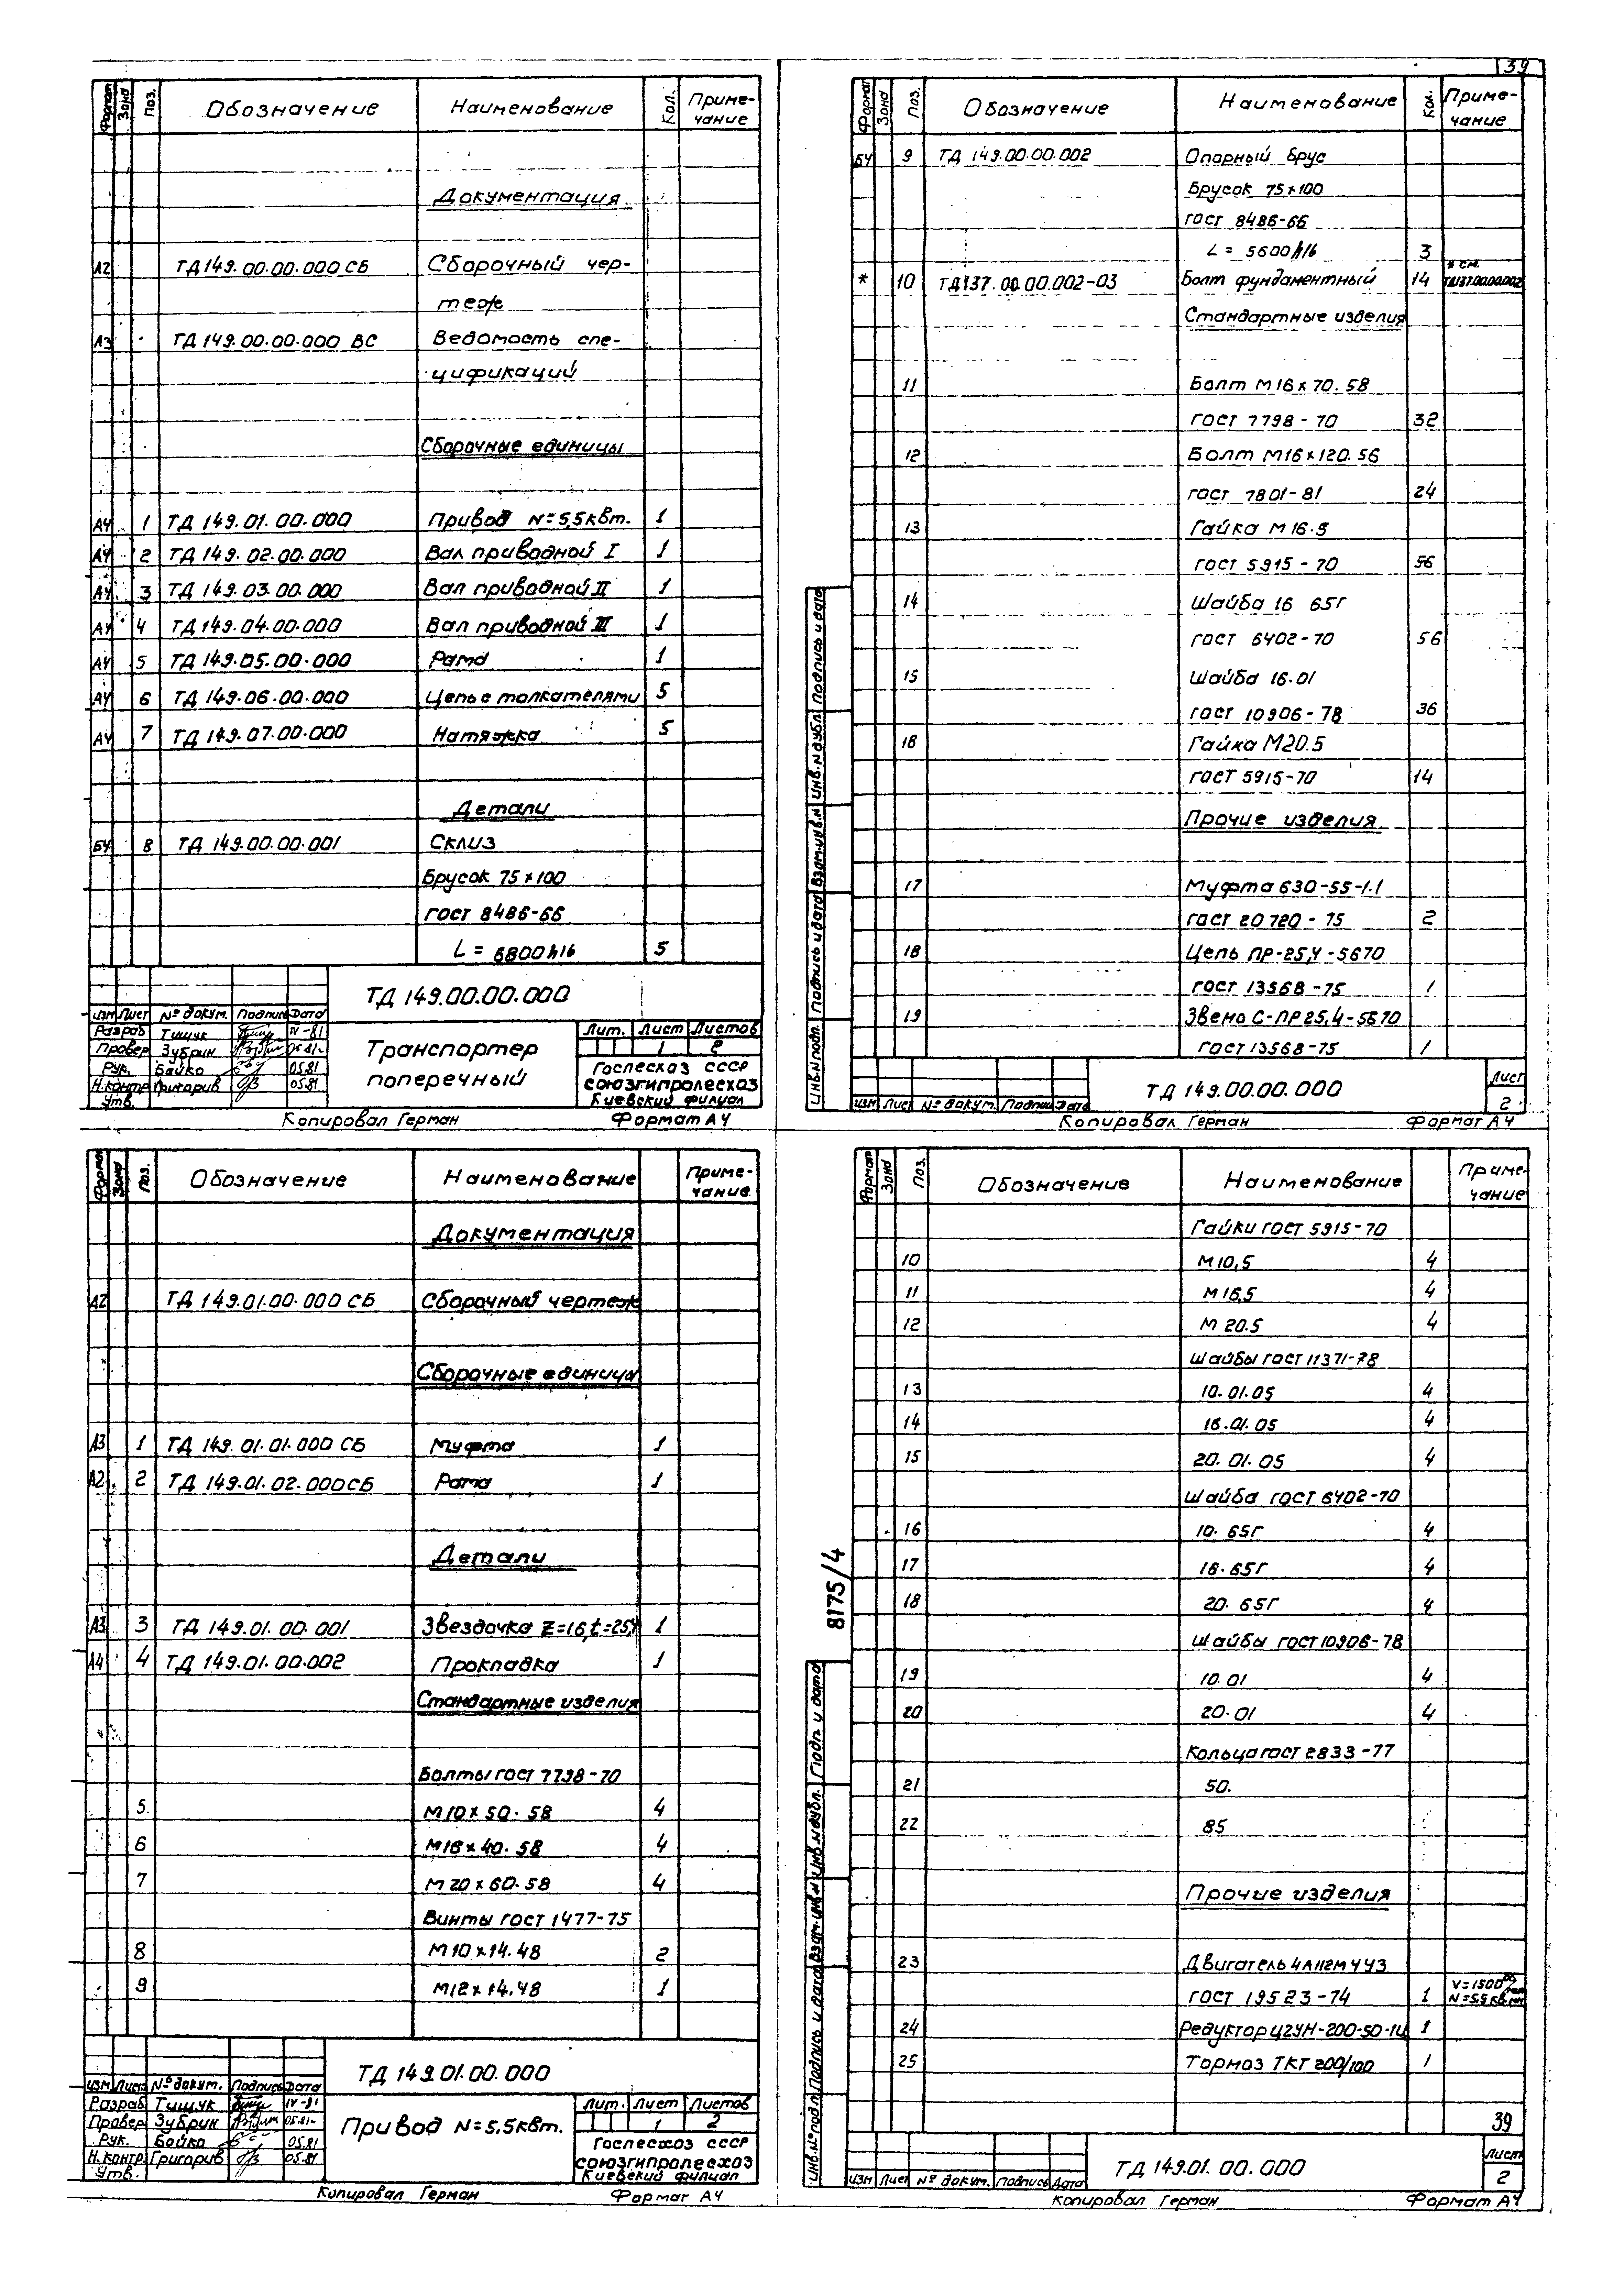 39
Формат Зона Поз. Обозначение Наименование Кол. Приме-
чание
Документация
А2 ТД 149.00.00.000 СБ Сборочный чер-
теж
А3 ТД 149.00.00.000 ВС Ведомость спе-
цификаций
Сборочные единицы
А4 1 ТД 149.01.00.000 Привод N=5,5квт. 1
А4 2 ТД 149.02.00.000 Вал приводной I 1
А4 3 ТД 149.03.00.000 Вал приводной II 1
А4 4 ТД 149.04.00.000 Вал приводной III 1
А4 5 ТД 149.05.00.000 Рама 1
А4 6 ТД 149.06.00.000 Цепь с толкателями 5
А4 7 ТД 149.07.00.000 Натяжка 5
Детали
БЧ 8 ТД 149.00.00.001 Склиз
Брусок 75×100
гост 8486-66
L = 6800h16 5
ТД 149.00.00.000
изм Лист № докум. Подпись Дата
Разраб Тищук IV-81
Провер Зубрин 05.81
Рук. Байко 05.81
Н.контр Григорив 05.81
Утв.
Транспортер
поперечный
Лит. Лист Листов
1 2
Гослесхоз СССР
союзгипролесхоз
Киевский филиал
Копировал Герман Формат А4
Формат Зона Поз. Обозначение Наименование Кол. Приме-
чание
БЧ 9 ТД 149.00.00.002 Опорный брус
Брусок 75×100
гост 8486-66
L = 5600h16 3
* 10 ТД137.00.00.002-03 Болт фундаментный 14 * см. ТД137.00.00.002
Стандартные изделия
11 Болт М16×70.58
гост 7798-70 32
12 Болт М16×120.56
гост 7801-81 24
13 Гайка М16.5
гост 5915-70 56
14 Шайба 16 65Г
гост 6402-70 56
15 Шайба 16.01
гост 10906-78 36
16 Гайка М20.5
гост 5915-70 14
Прочие изделия
17 Муфта 630-55-1.1
гост 20720-75 2
18 Цепь ПР-25,4-5670
гост 13568-75 1
19 Звено С-ПР25,4-5670
гост 13568-75 1
Инв.№ подл. Подпись и дата Взам.инв.№ Инв.№ дубл. Подпись и дата
изм Лист № докум. Подпись Дата
ТД 149.00.00.000
Лист
2
Копировал Герман Формат А4
Формат Зона Поз. Обозначение Наименование Приме-
чание
Документация
А2 ТД 149.01.00.000 СБ Сборочный чертеж
Сборочные единицы
А3 1 ТД 149.01.01.000 СБ Муфта 1
А2 2 ТД 149.01.02.000СБ Рама 1
Детали
А3 3 ТД 149.01.00.001 Звездочка Z=16,t=25,4 1
А4 4 ТД 149.01.00.002 Прокладка 1
Стандартные изделия
Болты гост 7798-70
5 М10×50.58 4
6 М16×40.58 4
7 М20×60.58 4
Винты гост 1477-75
8 М10×14.48 2
9 М12×14.48 1
ТД 149.01.00.000
изм Лист № докум. Подпись Дата
Разраб Тищук IV-81
Провер Зубрин 05.81
Рук. Бойко 05.81
Н.контр. Григорив 05.81
Утв.
Привод N=5,5квт.
Лит. Лист Листов
1 2
Гослесхоз СССР
союзгипролесхоз
Киевский филиал
Копировал Герман Формат А4
Формат Зона Поз. Обозначение Наименование Приме-
чание
Гайки гост 5915-70
10 М10,5 4
11 М16,5 4
12 М 20.5 4
Шайбы гост 11371-78
13 10.01.05 4
14 16.01.05 4
15 20.01.05 4
Шайба гост 6402-70
16 10.65Г 4
17 16.65Г 4
18 20.65Г 4
Шайбы гост 10906-78
19 10.01 4
20 20.01 4
Кольца гост 2833-77
21 50.
22 85
Прочие изделия
23 Двигатель 4А112М4У3
гост 19523-74 1 V=1500 об/мин
N=5,5 квт
24 Редуктор Ц2УН-200-50-1Ц 1
25 Тормоз ТКТ 200/100 1
39
8175/4
Инв.№ подл. Подпись и дата Взам.инв.№ Инв.№ дубл. Подп. и дата
изм Лист № докум. Подпись Дата
ТД 149.01.00.000
Лист
2
Копировал Герман Формат А4